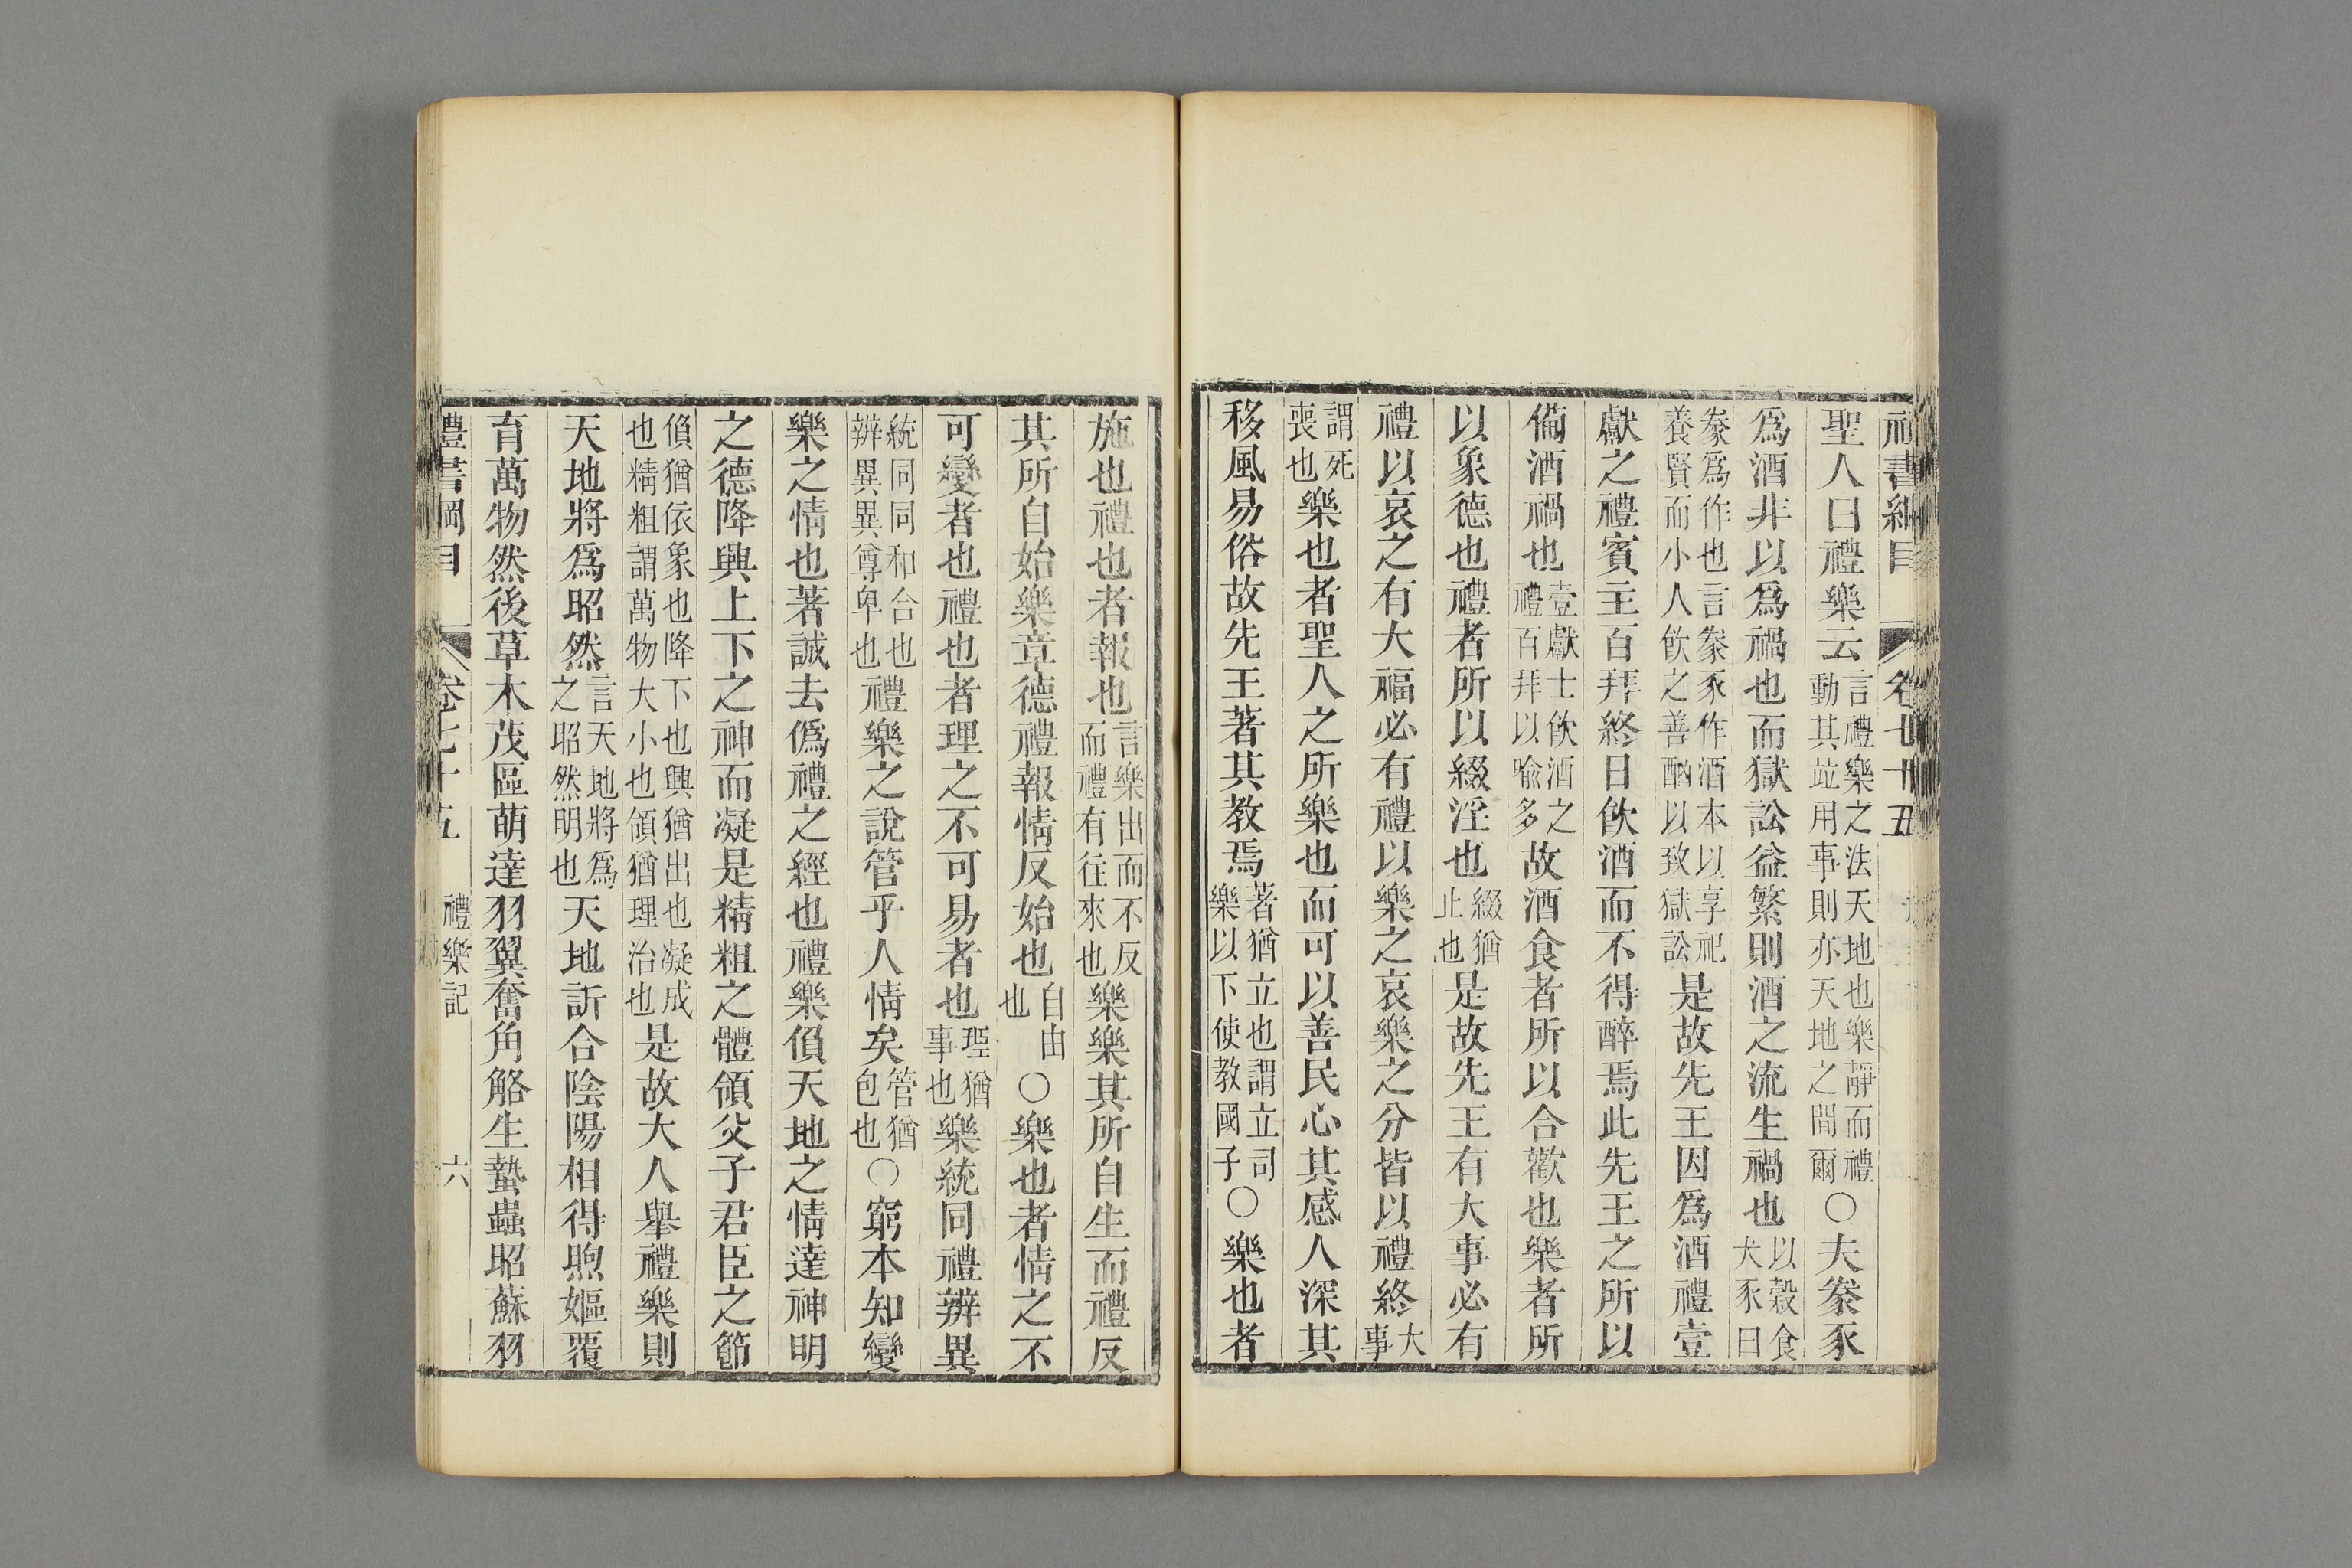 聖人曰禮樂云言禮樂之法天地也樂靜而禮動其竝用事則亦天地之間爾○夫豢豕
爲酒非以爲禍也而獄訟益繁則酒之流生禍也以穀食犬豕曰
豢爲作也言豢豕作酒本以享祀養賢而小人飲之善酗以致獄訟是故先王因爲酒禮壹
獻之禮賓主百拜終日飲酒而不得醉焉此先王之所以
備酒禍也壹獻士飲酒之禮百拜以喻多故酒食者所以合歡也樂者所
以象德也禮者所以綴淫也綴猶止也是故先王有大事必有
禮以哀之有大福必有禮以樂之哀樂之分皆以禮終大事
謂死喪也樂也者聖人之所樂也而可以善民心其感人深其
移風易俗故先王著其教焉著猶立也謂立司樂以下使教國子○樂也者
施也禮也者報也言樂出而不反而禮有往來也樂樂其所自生而禮反
其所自始樂章德禮報情反始也自由也○樂也者情之不
可變者也禮也者理之不可易者也理猶事也樂統同禮辨異
統同同和合也辨異異尊卑也禮樂之說管乎人情矣管猶包也○窮本知變
樂之情也著誠去僞禮之經也禮樂偩天地之情達神明
之德降興上下之神而凝是精粗之體領父子君臣之節
偩猶依象也降下也興猶出也凝成也精粗謂萬物大小也領猶理治也是故大人舉禮樂則
天地將爲昭然言天地將爲之昭然明也天地訢合陰陽相得煦嫗覆
育萬物然後草木茂區萌達羽翼奮角觡生蟄蟲昭蘇羽
禮書綱目 卷七十五 禮樂記 六